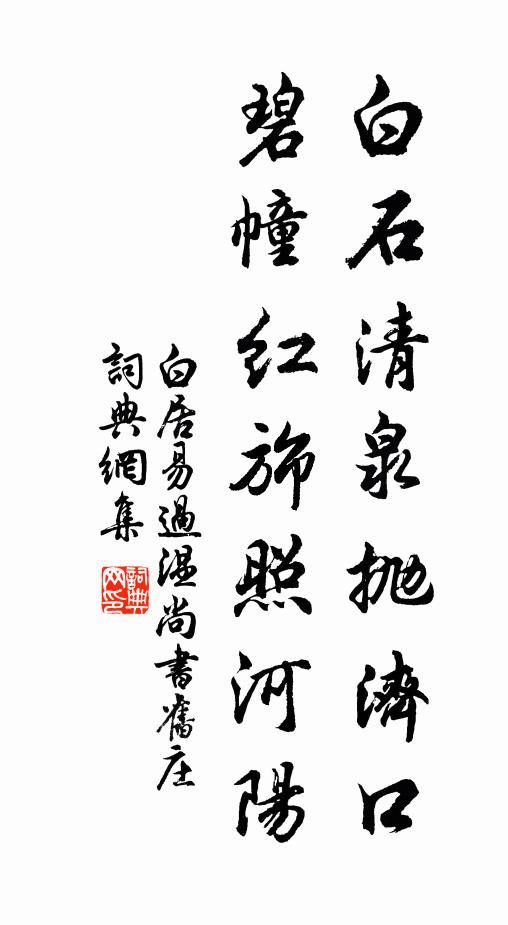 白石清泉抛濟口
碧幢紅旆照河陽
白居易過溫尚書舊庄
詞典網集
詞典網印